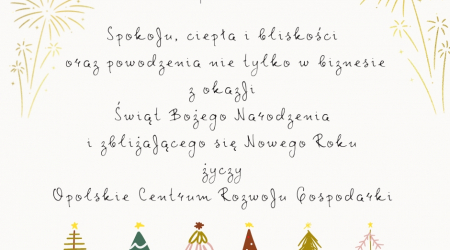 Spokoju, ciepła i bliskości
oraz powodzenia nie tylko w biznesie
z okazji
Świąt Bożego Narodzenia
i zbliżającego się Nowego Roku
życzy
Opolskie Centrum Rozwoju Gospodarki